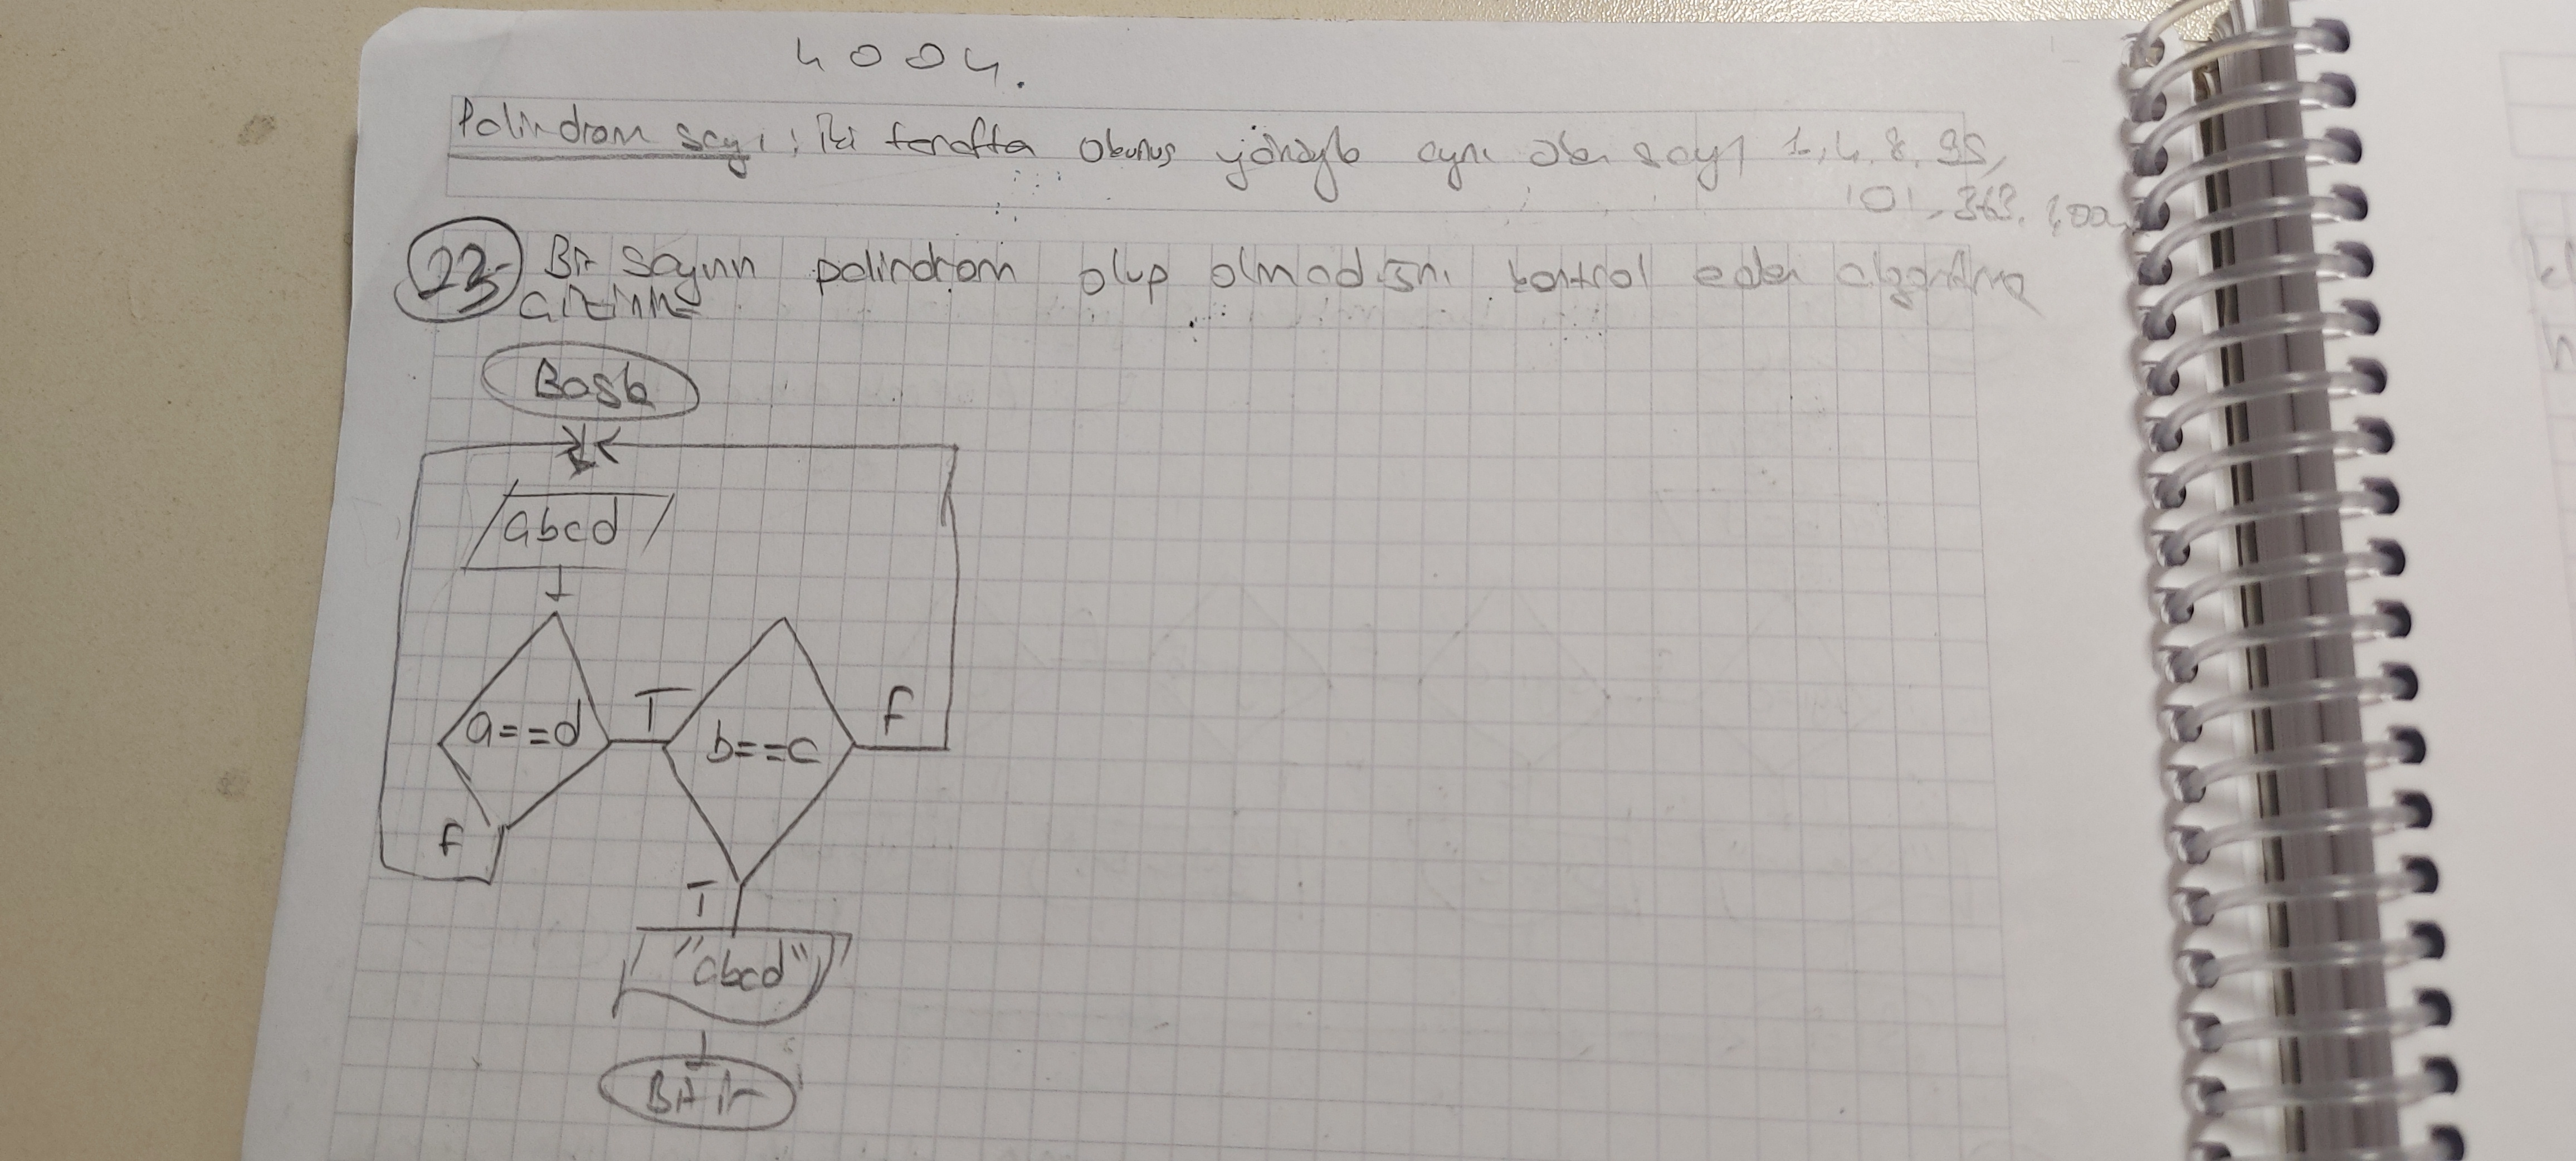 4004.
Palindrom sayı, iki tarafta okunuş yönüyle aynı olan sayı 1, 4, 8, 95,
101, 363, 4004
23- Bir sayının palindrom olup olmadığını kontrol eden algoritma
çiziniz
Başla
abcd
a==d
T
b==c
F
F
T
"abcd"
Bitir